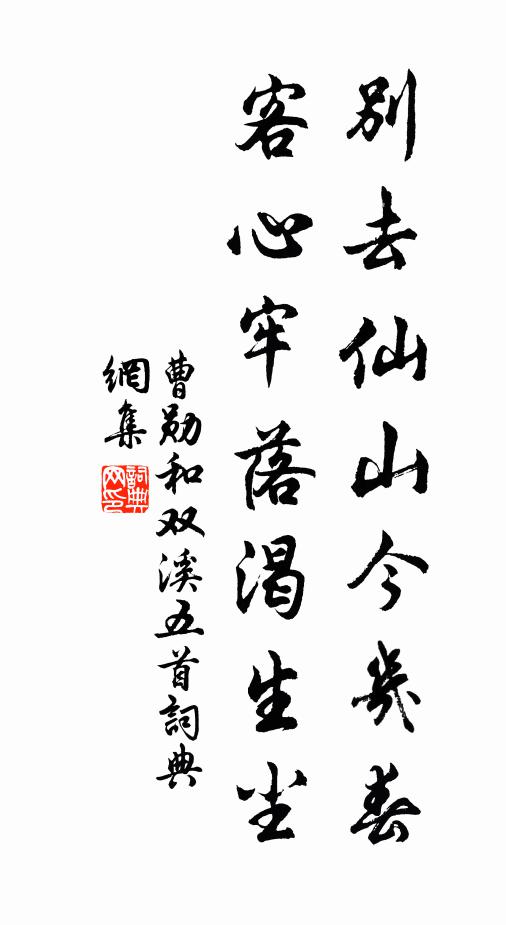 別去仙山今幾春
客心牢落渴生尘
曹勛和双溪五首詞典
網集
詞典网印